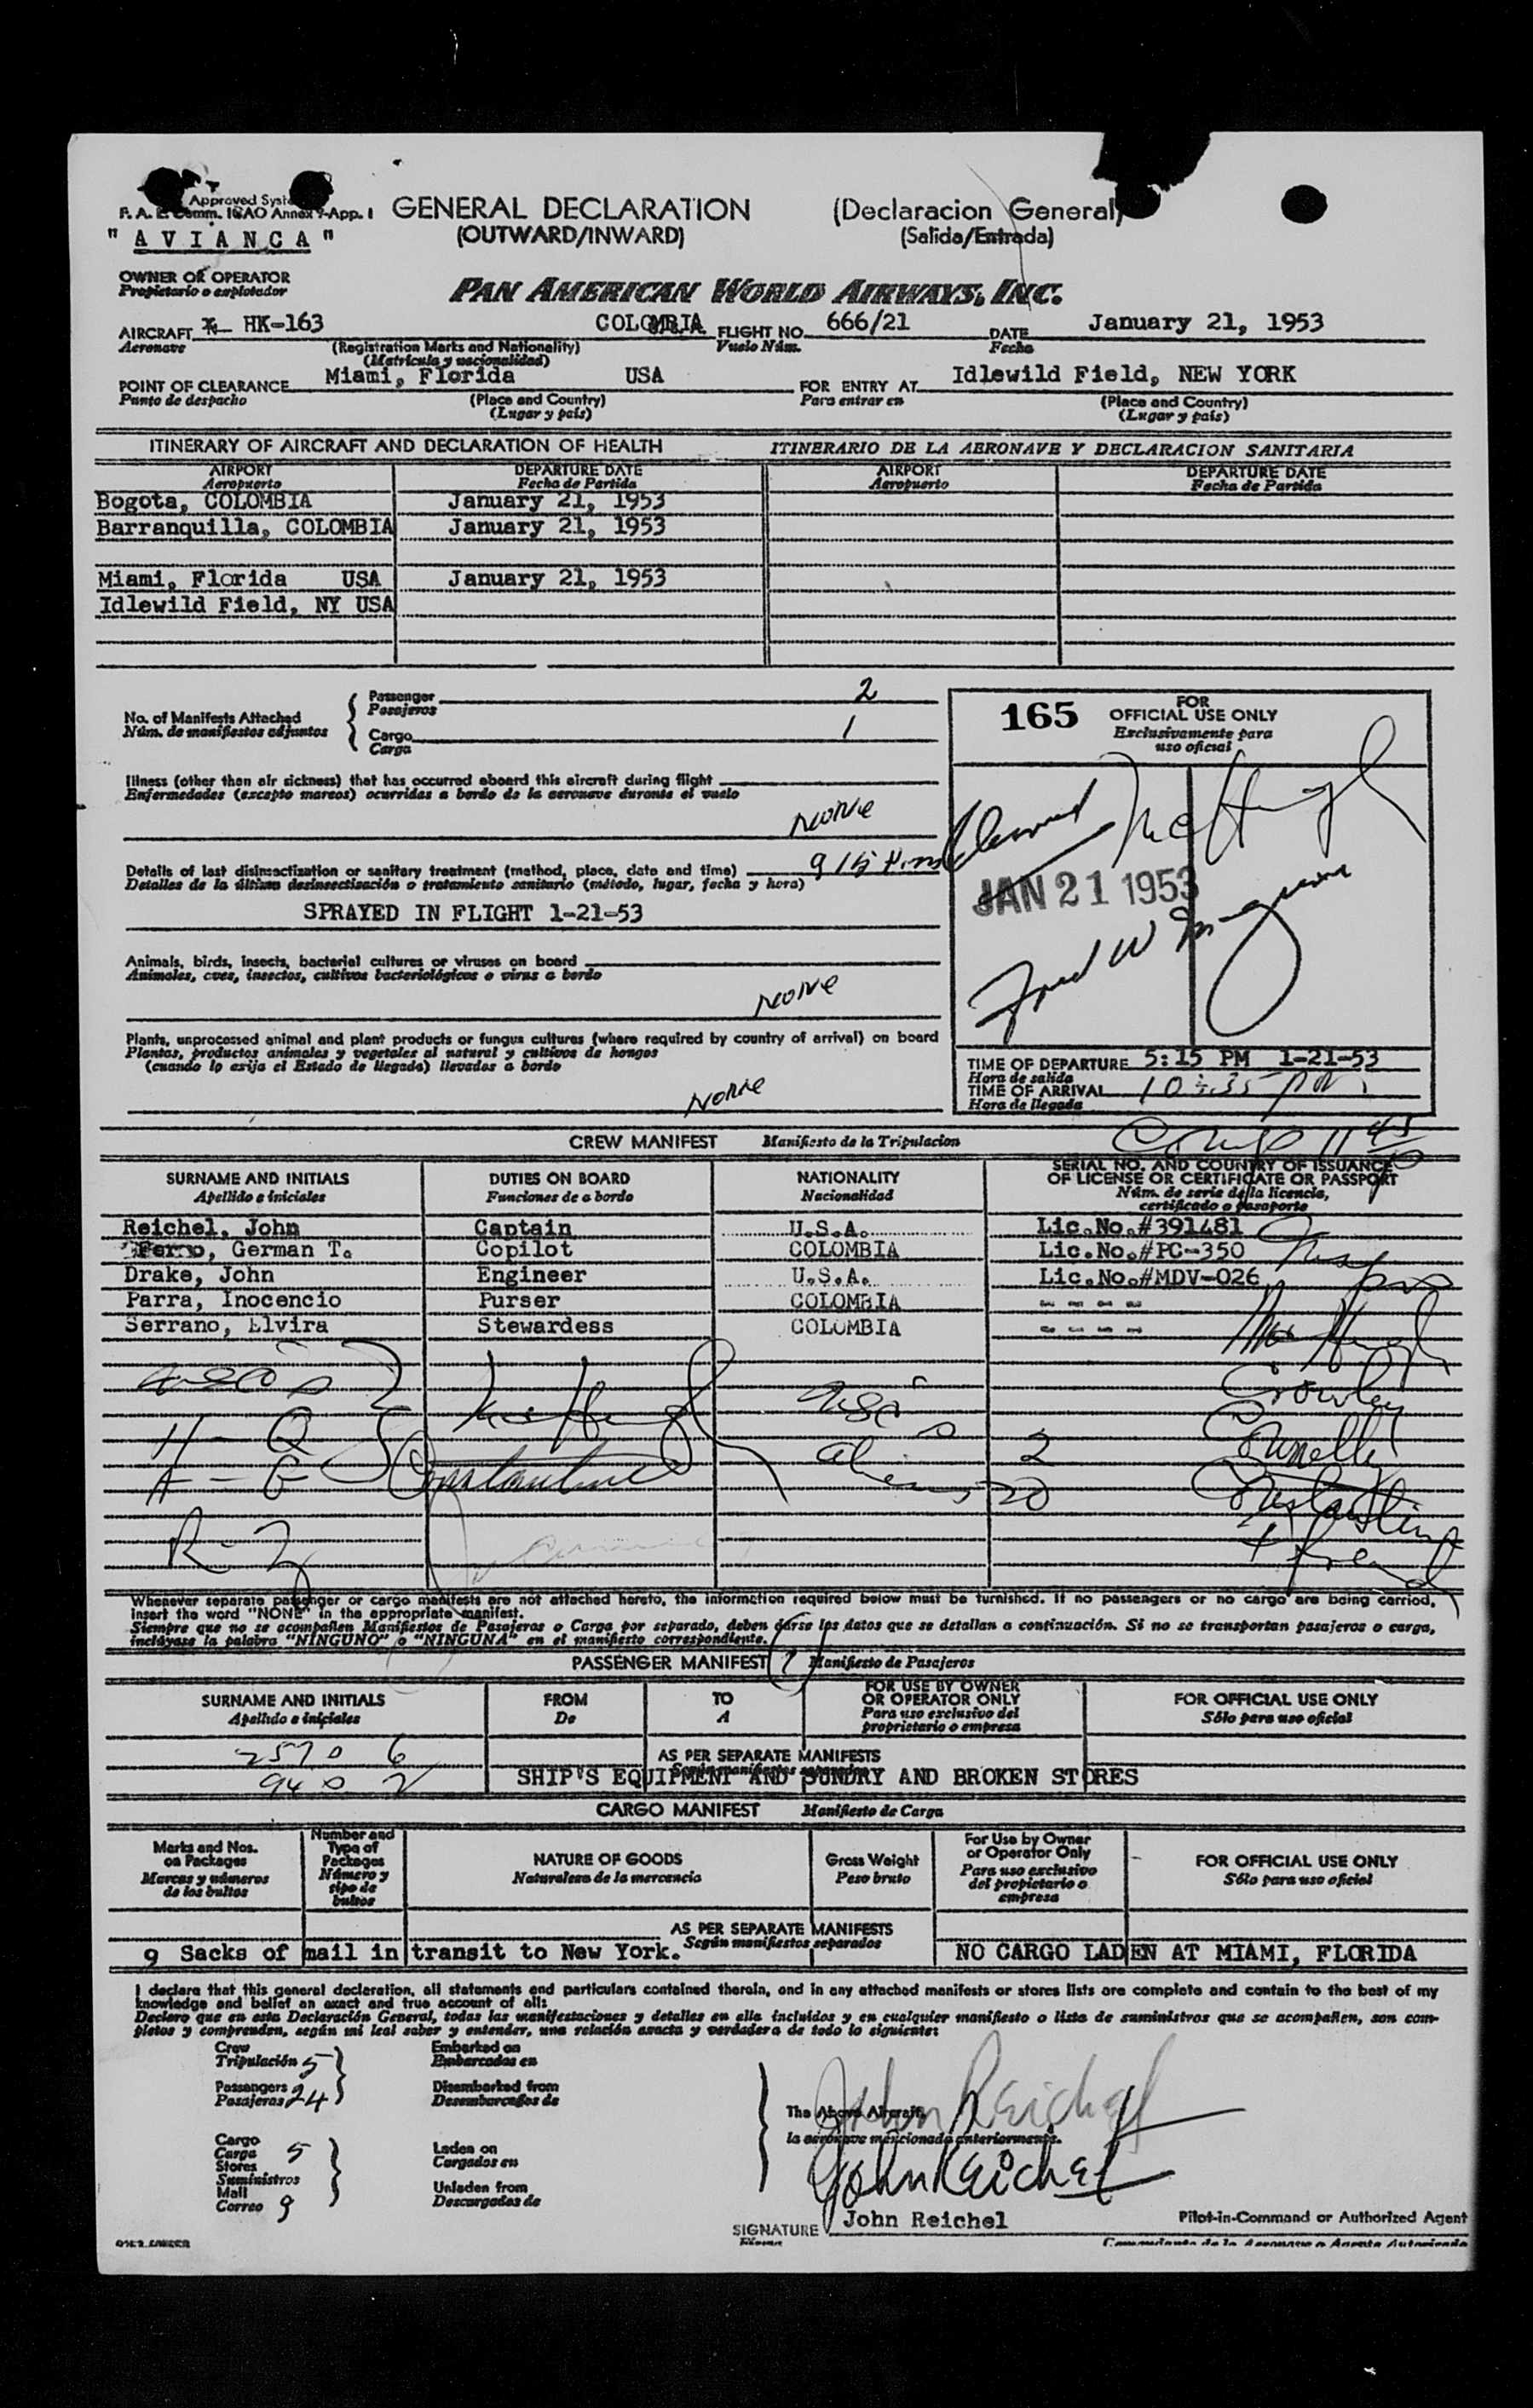 Approved
F. A. L. Comm. ICAO Annex 9-App. 1
GENERAL DECLARATION (Declaracion General)
" A V I A N C A "
(OUTWARD/INWARD) (Salida/Entrada)
OWNER OR OPERATOR
Propietario o explotador
PAN AMERICAN WORLD AIRWAYS, INC.
AIRCRAFT HK-163 COLOMBIA FLIGHT NO. 666/21 DATE January 21, 1953
Aeronave (Registration Marks and Nationality) Vuelo Núm. Fecha
(Matricula y nacionalidad)
POINT OF CLEARANCE Miami, Florida USA FOR ENTRY AT Idlewild Field, NEW YORK
Punto de despacho (Place and Country) Para entrar en (Place and Country)
(Lugar y país) (Lugar y país)
ITINERARY OF AIRCRAFT AND DECLARATION OF HEALTH ITINERARIO DE LA AERONAVE Y DECLARACION SANITARIA
AIRPORT DEPARTURE DATE AIRPORT DEPARTURE DATE
Aeropuerto Fecha de Partida Aeropuerto Fecha de Partida
Bogota, COLOMBIA January 21, 1953
Barranquilla, COLOMBIA January 21, 1953
Miami, Florida USA January 21, 1953
Idlewild Field, NY USA
No. of Manifests Attached
Núm. de manifiestos adjuntos
Passenger 2
Pasajeros
Cargo 1
Carga
165
FOR
OFFICIAL USE ONLY
Exclusivamente para
uso oficial
Illness (other than air sickness) that has occurred aboard this aircraft during flight
Enfermedades (excepto mareos) ocurridas a bordo de la aeronave durante el vuelo
None
Details of last disinsectization or sanitary treatment (method, place, date and time) 915 P.m
Detalles de la última desinsectisación o tratamiento sanitario (método, lugar, fecha y hora)
SPRAYED IN FLIGHT 1-21-53
JAN 21 1953
Animals, birds, insects, bacterial cultures or viruses on board
Animales, aves, insectos, cultivos bacteriológicos o virus a bordo
None
Plants, unprocessed animal and plant products or fungus cultures (where required by country of arrival) on board
Plantas, productos animales y vegetales al natural y cultivos de hongos
(cuando lo exija el Estado de llegada) llevados a bordo
None
TIME OF DEPARTURE 5:15 PM 1-21-53
Hora de salida
TIME OF ARRIVAL 10:35 PM
Hora de llegada
CREW MANIFEST Manifiesto de la Tripulacion
SURNAME AND INITIALS DUTIES ON BOARD NATIONALITY SERIAL NO. AND COUNTRY OF ISSUANCE OF LICENSE OR CERTIFICATE OR PASSPORT
Apellido e iniciales Funciones de a bordo Nacionalidad Núm. de serie de la licencia, certificado o pasaporte
Reichel, John Captain U.S.A. Lic.No.#391481
Ferro, German T. Copilot COLOMBIA Lic.No.#PC-350
Drake, John Engineer U.S.A. Lic.No.#MDV-026
Parra, Inocencio Purser COLOMBIA - - - -
Serrano, Elvira Stewardess COLOMBIA - - - -
Constantine
aliens 20
Whenever separate passenger or cargo manifests are not attached hereto, the information required below must be furnished. If no passengers or no cargo are being carried,
insert the word "NONE" in the appropriate manifest.
Siempre que no se acompañen Manifiestos de Pasajeros o Carga por separado, deben darse los datos que se detallan a continuación. Si no se transportan pasajeros o carga,
inclúyase la palabra "NINGUNO" o "NINGUNA" en el manifiesto correspondiente.
PASSENGER MANIFEST Manifiesto de Pasajeros
SURNAME AND INITIALS FROM TO FOR USE BY OWNER OR OPERATOR ONLY FOR OFFICIAL USE ONLY
Apellido e iniciales De A Para uso exclusivo del proprietario o empresa Sólo para uso oficial
AS PER SEPARATE MANIFESTS
SHIP'S EQUIPMENT AND SUNDRY AND BROKEN STORES
CARGO MANIFEST Manifiesto de Carga
Marks and Nos. on Packages Number and Type of Packages NATURE OF GOODS Gross Weight For Use by Owner or Operator Only FOR OFFICIAL USE ONLY
Marcas y números de los bultos Número y tipo de bultos Naturaleza de la mercancia Peso bruto Para uso exclusivo del propietario o empresa Sólo para uso oficial
AS PER SEPARATE MANIFESTS
Según manifiestos separados
9 Sacks of mail in transit to New York. NO CARGO LADEN AT MIAMI, FLORIDA
I declare that this general declaration, all statements and particulars contained therein, and in any attached manifests or stores lists are complete and contain to the best of my
knowledge and belief an exact and true account of all:
Declaro que en esta Declaración General, todas las manifestaciones y detalles en ella incluidos y en cualquier manifiesto o lista de suministros que se acompañen, son com-
pletos y comprenden, según mi leal saber y entender, una relación exacta y verdadera de todo lo siguiente:
Crew Embarked on
Tripulación 5 Embarcados en
Passengers Disembarked from
Pasajeros 24 Desembarcados de
The Above Aircraft
la aeronave mencionada anteriormente.
John Reichel
Cargo
Carga 5 Laden on
Stores Cargados en
Suministros
Mail Unladen from
Correo 9 Descargados de
John Reichel
SIGNATURE John Reichel Pilot-in-Command or Authorized Agent
Firma Comandante de la Aeronave o Agente Autorizado